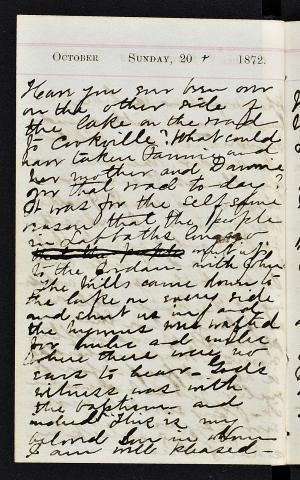 October Sunday, 20 + 1872.
Have you ever been over
on the other side of
the lake on the road
to Cookville? What could
have taken Fannie and
her mother and Dannie
on that road to-day?
It was for the self same
reason that the people
in days
went up
to the Jordan with John
The hills came down to
the lake on every side
and shut us in, and
the hymns were wafted
for miles and miles
where there were no
ears to hear. God's
witness was with
the baptism and
This is my
beloved Son in whom
I am well pleased -